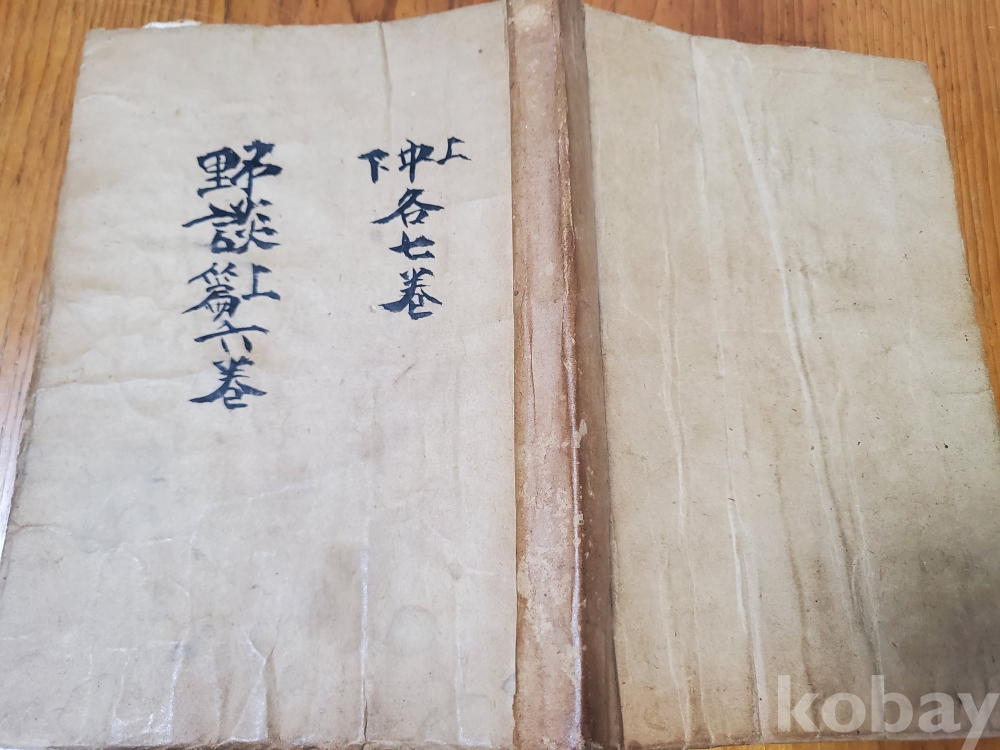 上中下各七卷
野談上篇六卷
kobay